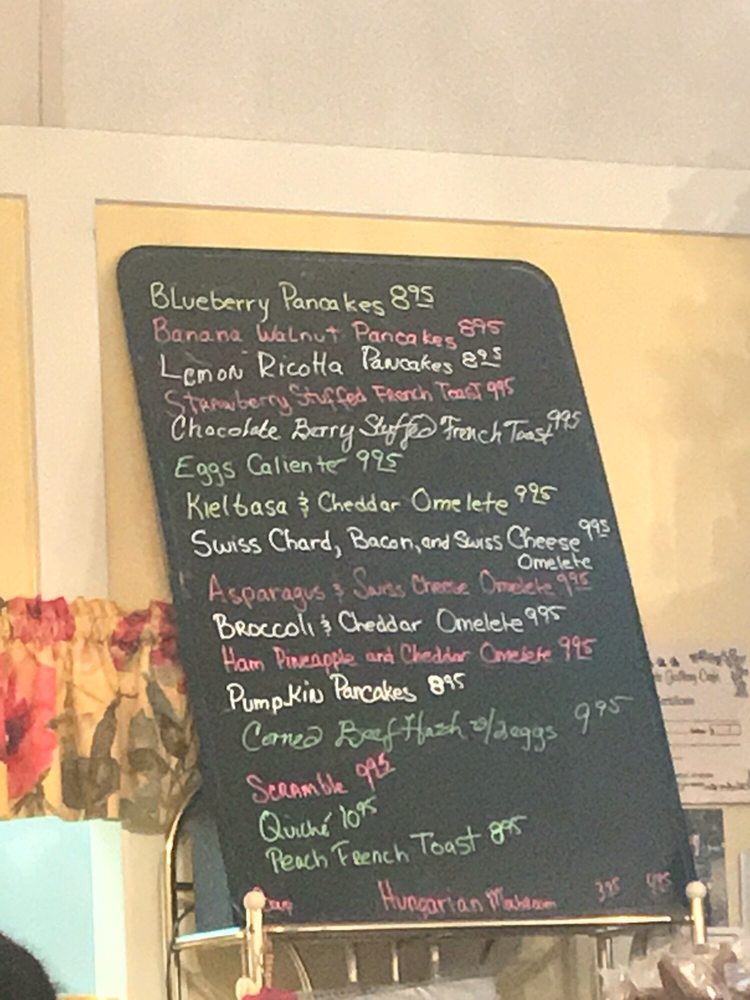 Blueberry Pancakes 8 95
Banana Walnut Pancakes 8 95
Lemon Ricotta Pancakes 8 95
Strawberry Stuffed French Toast 9 95
Chocolate Berry Stuffed French Toast 9 95
Eggs Caliente 9 95
Kielbasa & Cheddar Omelete 9 95
Swiss Chard, Bacon, and Swiss Cheese 9 95
Omelete
Asparagus & Swiss Cheese Omelete 9 95
Broccoli & Cheddar Omelete 9 95
Ham Pineapple and Cheddar Omelete 9 95
Pumpkin Pancakes 8 95
Corned Beef Hash w/2eggs 9 95
Scramble 9 95
Quiché 10 95
Peach French Toast 8 95
Soup Hungarian Mushroom 3 95 4 95